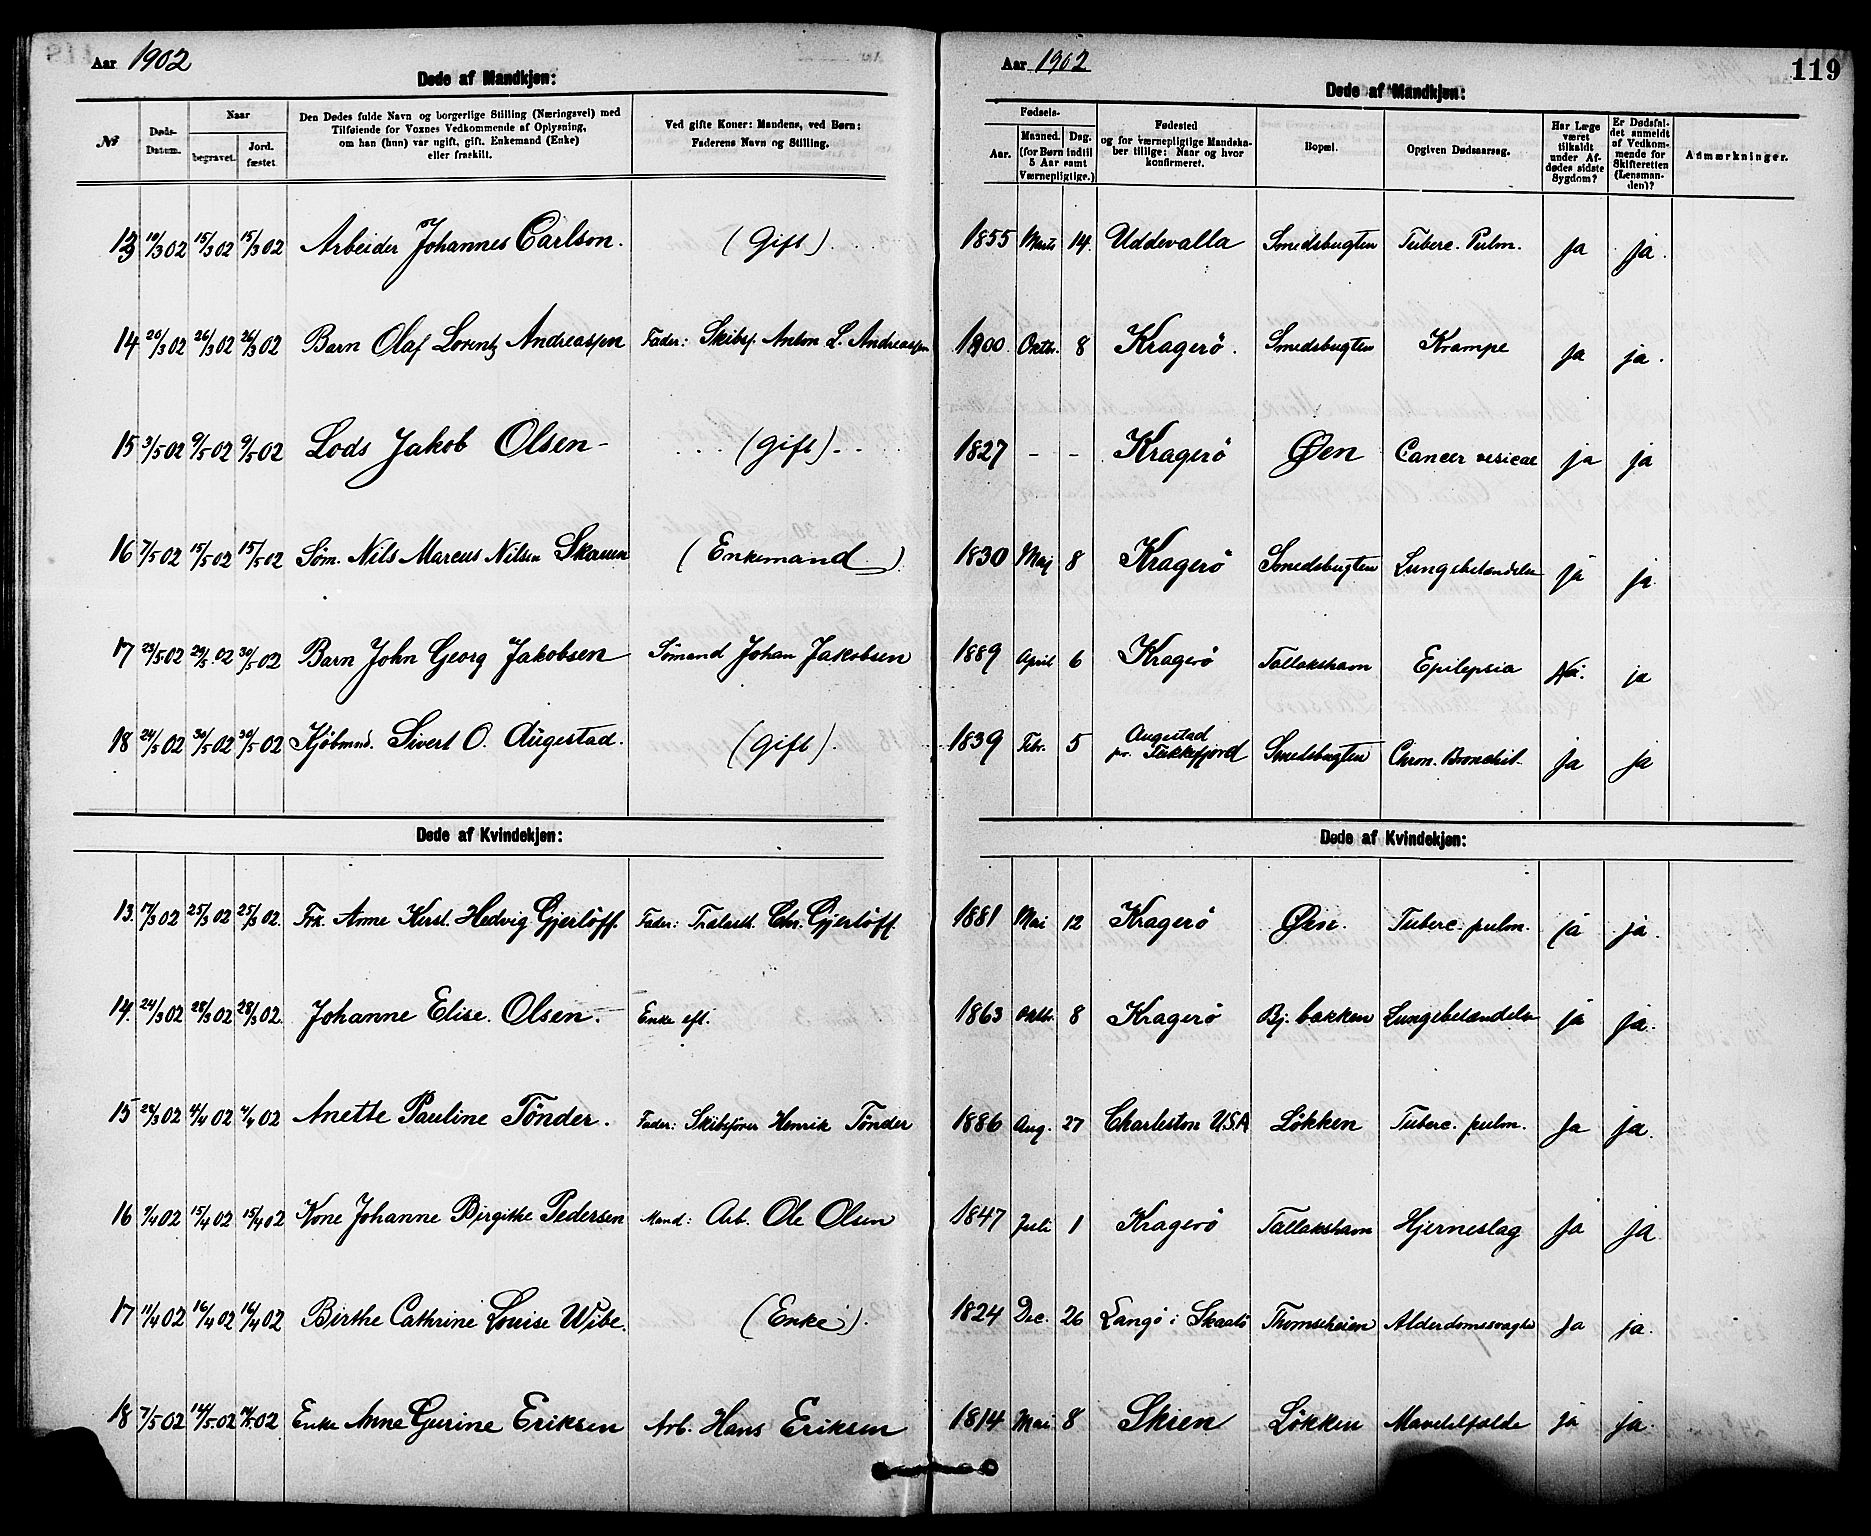 Aar 1902
Døde af Mandkjøn:
№ Døds-Datum. Naar begravet. Jord. fæstet. Den Dødes fulde Navn og borgerlige Stilling (Næringsvei) med Tilføiende for Voxnes Vedkommende af Oplysning, om han (hun) var ugift, gift, Enkemand (Enke) eller fraskilt. Ved gifte Koner: Mandens, ved Børn: Faderens Navn og Stilling.
13 10/3 02 15/3 02 15/3 02 Arbeider Johannes Carlson. (Gift)
14 20/3 02 26/3 02 26/3 02 Barn Olaf Lorentz Andreassen Fader: Skibsf. Anton L. Andreassen
15 3/5 02 9/5 02 9/5 02 Lods Jakob Olsen - (gift)
16 7/5 02 15/5 02 15/5 02 Søm. Nils Marcus Nilsen (Enkemand)
17 23/5 02 29/5 02 30/5 02 Barn John Georg Jakobsen Sømand Johan Jakobsen
18 24/5 02 30/5 02 30/5 02 Kjøbmnd. Sivert O. Augestad. (gift).
Døde af Kvindekjøn:
13. 17/3 02 25/3 02 25/3 02 Frk. Anne Kirst. Hedvig Gjerløff. Fader: Chr. Gjerløff.
14. 24/3 02 28/3 02 28/3 02. Johanne Elise Olsen. Enke eft.
15 4/4 02 4/4 02 Anette Pauline Tönder. Fader: Skibsfører Henrik Tönder
16 9/4 02 15/4 02 15/4 02 Kone Johanne Birgithe Pedersen Mand: Arb. Ole Olsen
17 11/4 02 16/4 02 16/4 02 Birthe Cathrine Louise Wibe. (Enke).
18 7/5 02 14/5 02 14/5 02 Enke Anne Gurine Eriksen Arb. Hans Eriksen
Aar 1902
119
Døde af Mandkjøn:
Fødsels- Aar. Maaned. Dag. (for Børn indtil 5 Aar samt Værnepligtige.) Fødested og for værnepligtige Mandskaber tillige: Naar og hvor konfirmeret. Bopæl. Opgiven Dødsaarsag. Har Læge været tilkaldt under Afdødes sidste Sygdom? Er Dødsfaldet anmeldt af Vedkommende for Skifteretten (Lensmanden)? Anmærkninger.
1855 Marts 14. Uddevalla Smedsbugten Tuberc. Pulm. Ja ja.
1900 Oktbr. 8 Kragerö. Smedsbugten Krampe Ja ja.
1827 - - Kragerö Øen Cancer vesicae ja ja
1830 Maj 8 Kragerö Smedsbugten Lungebetændelse ja ja
1889 April 6 Kragerö Tallakshavn Epilepsia Nei. ja
1839 Febr. 5 Augestad pr. Fekkefjord Smedsbugten Chron. Bronchit. Ja Ja
Døde af Kvindekjøn:
1881 Mai 12 Kragerö Øen. Tuberc. pulm. ja ja.
1863 Oktbr. 8 Kragerö Bj. bakken Lungebetændelse ja ja.
1886 Aug. 27 Charleston U.S.A Løkken Tuberc. pulm. Ja ja.
1847 Juli 1 Kragerö Tallakshavn Hjerneslag Ja Ja
1824 Dec. 26 Langö i Skaatö Thomseheien Alderdomssvaghe Ja ja.
1814 Mai 8 Skien Løkken ja ja.